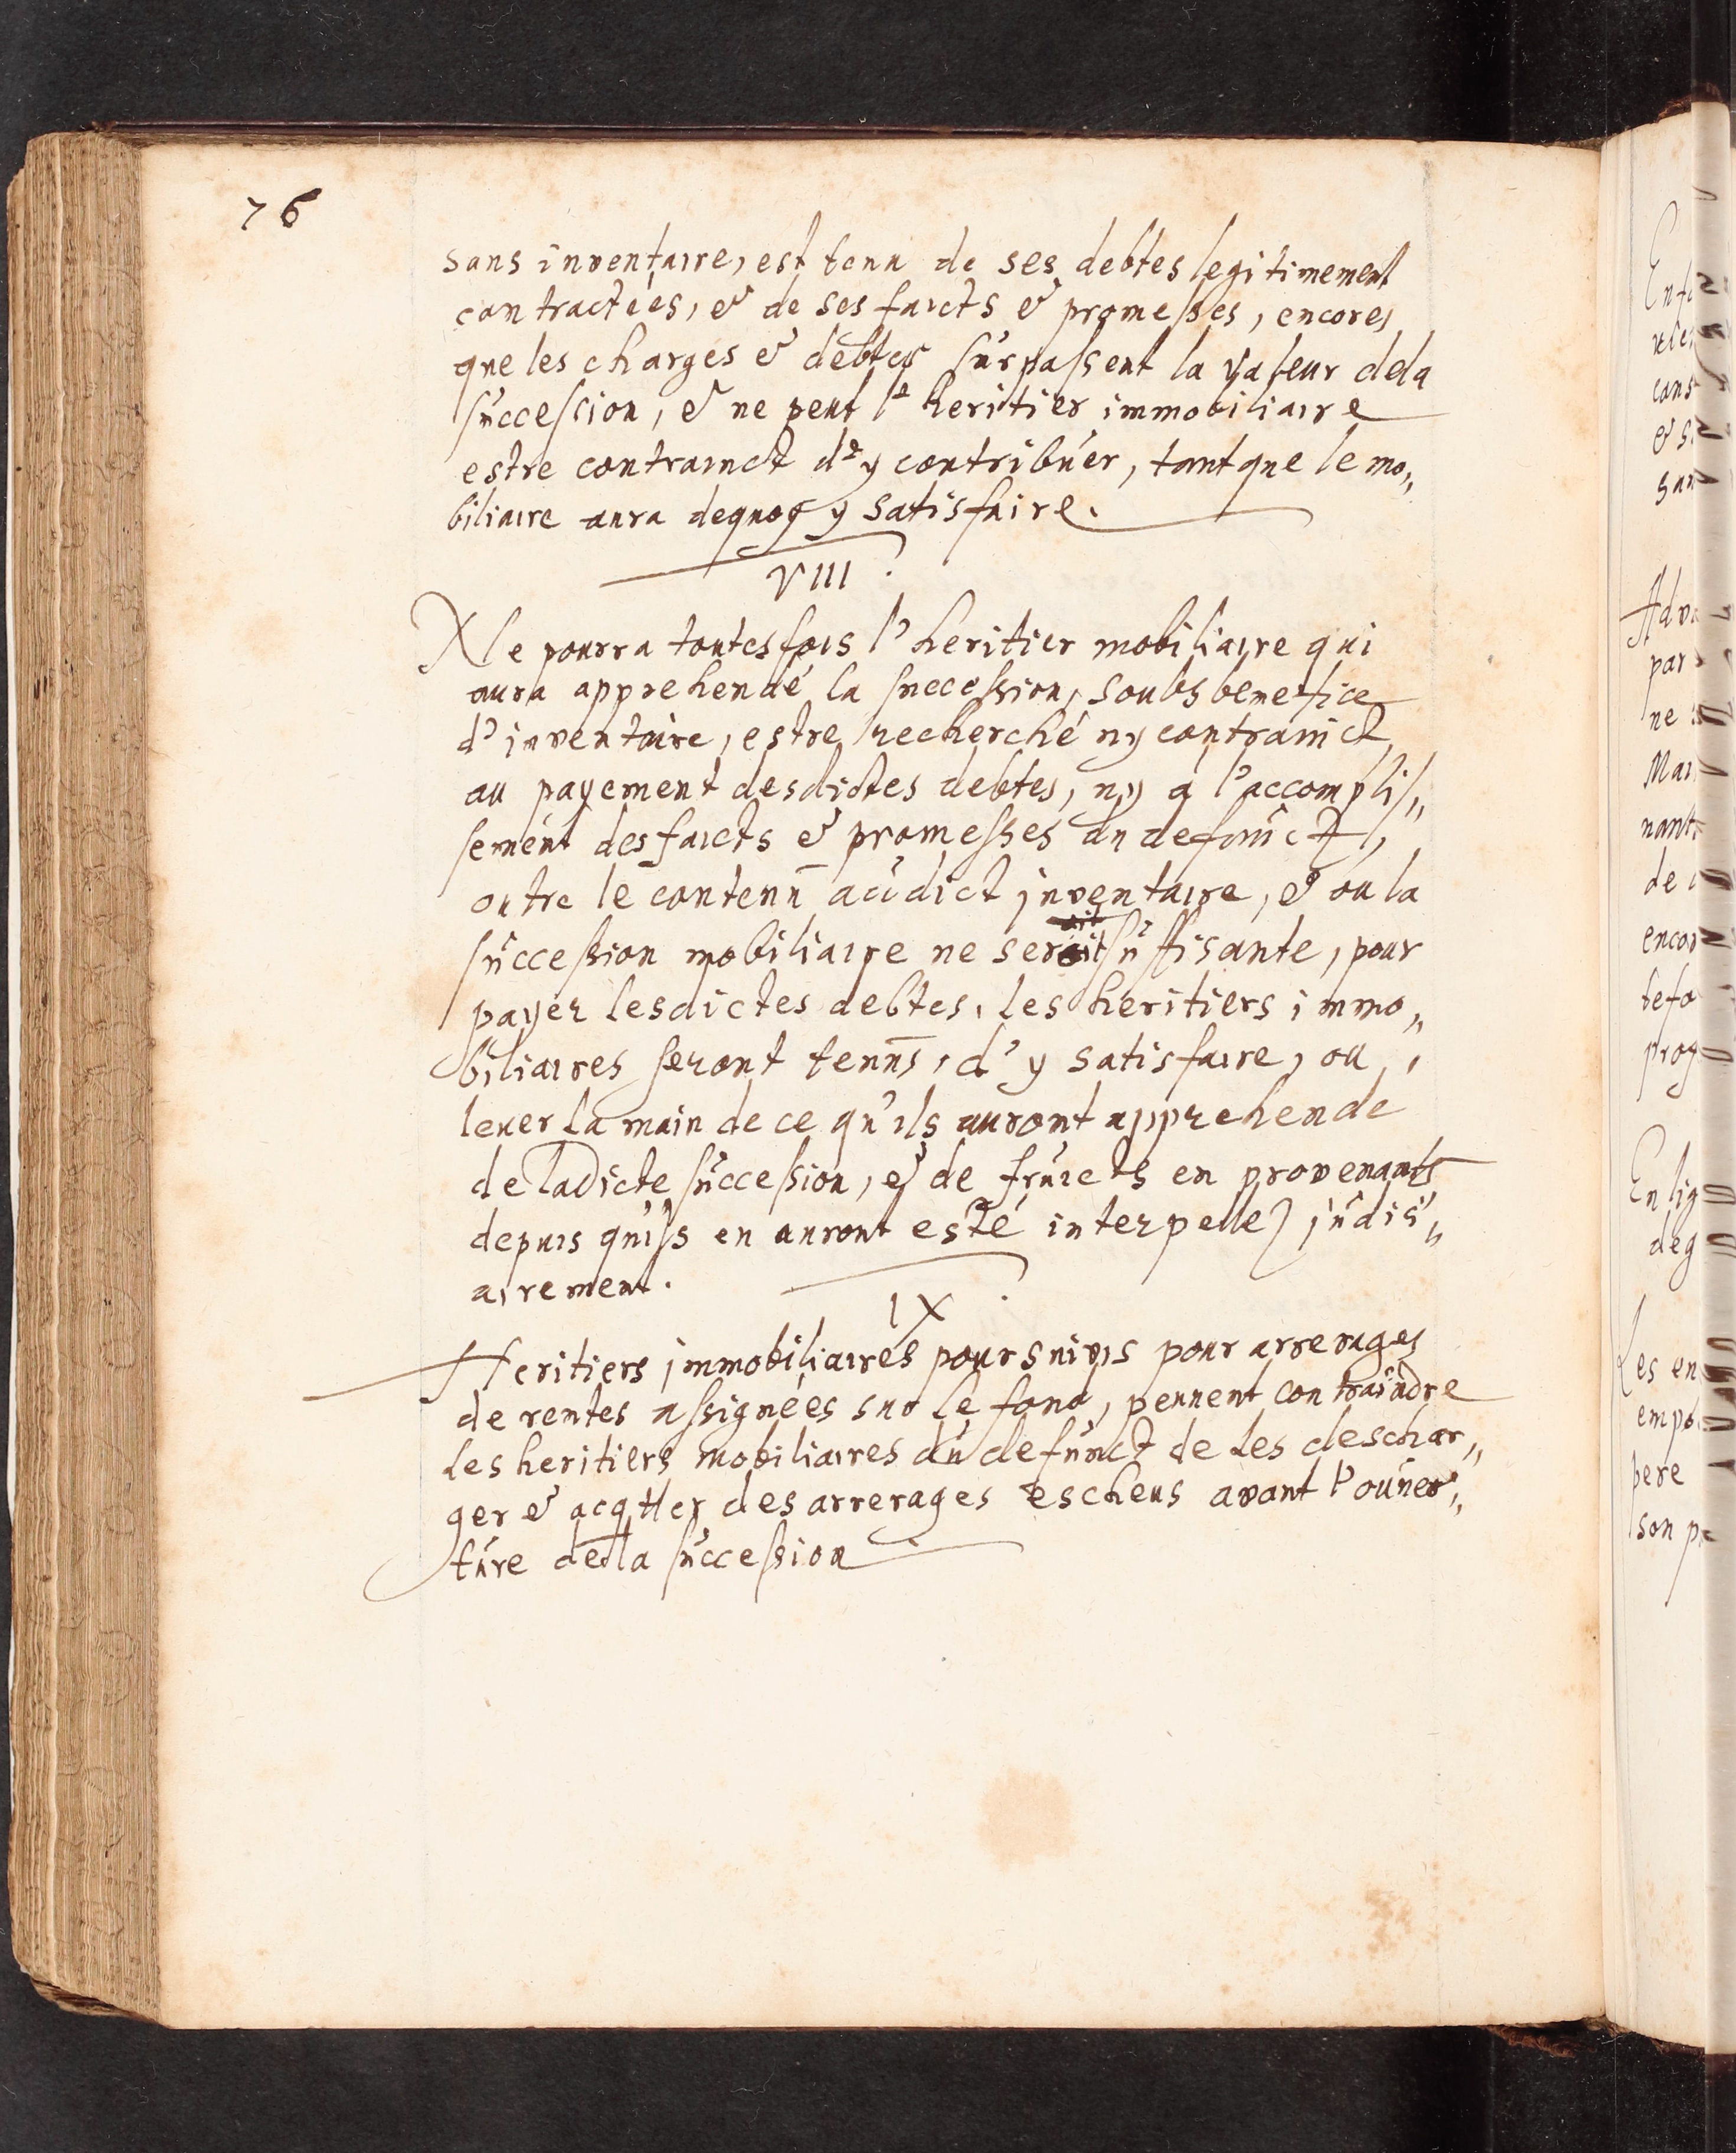 76
sans inventaire, est tenu de ses debtes legitimement
contractées, & de ses faicts & promesses, encores
que les charges & debtes surpassent la valeur dela
succession, & ne peut l'heritier immobiliaire
estre contrainct d'y contribuer, tant que le mo„
biliaire aura dequoy y satisfaire.
VIII.
Ne pourra toutesfois l'heritier mobiliaire qui
aura apprehendé la succession, soubs benefice
d'inventaire, estre recherché ny contrainct
au payement desdictes debtes, ny a l'accomplis„
sement des faicts & promesses du defunct,
outre le contenu audict inventaire, & ou la
succession mobiliaire ne seroit suffisante, pour
payer lesdictes debtes, les heritiers immo„
biliaires seront tenus, d'y satisfaire, ou
lever la main de ce qu'ils auront apprehende
de ladicte succession, & de fruicts en provenants
depuis qu'ils en auront esté interpellez judici„
airement.
IX.
Heritiers immobiliaires poursuivis pour arrerages
de rentes assignées sur le fond, peuvent contraindre
les heritiers mobiliaires du defunct de les deschar„
ger & acqtter des arrerages escheus avant l'ouver„
ture de la succession
Adv
par
ne
Mai
nant
de
encor
En lig
deg
Les en
empo
pere
son p